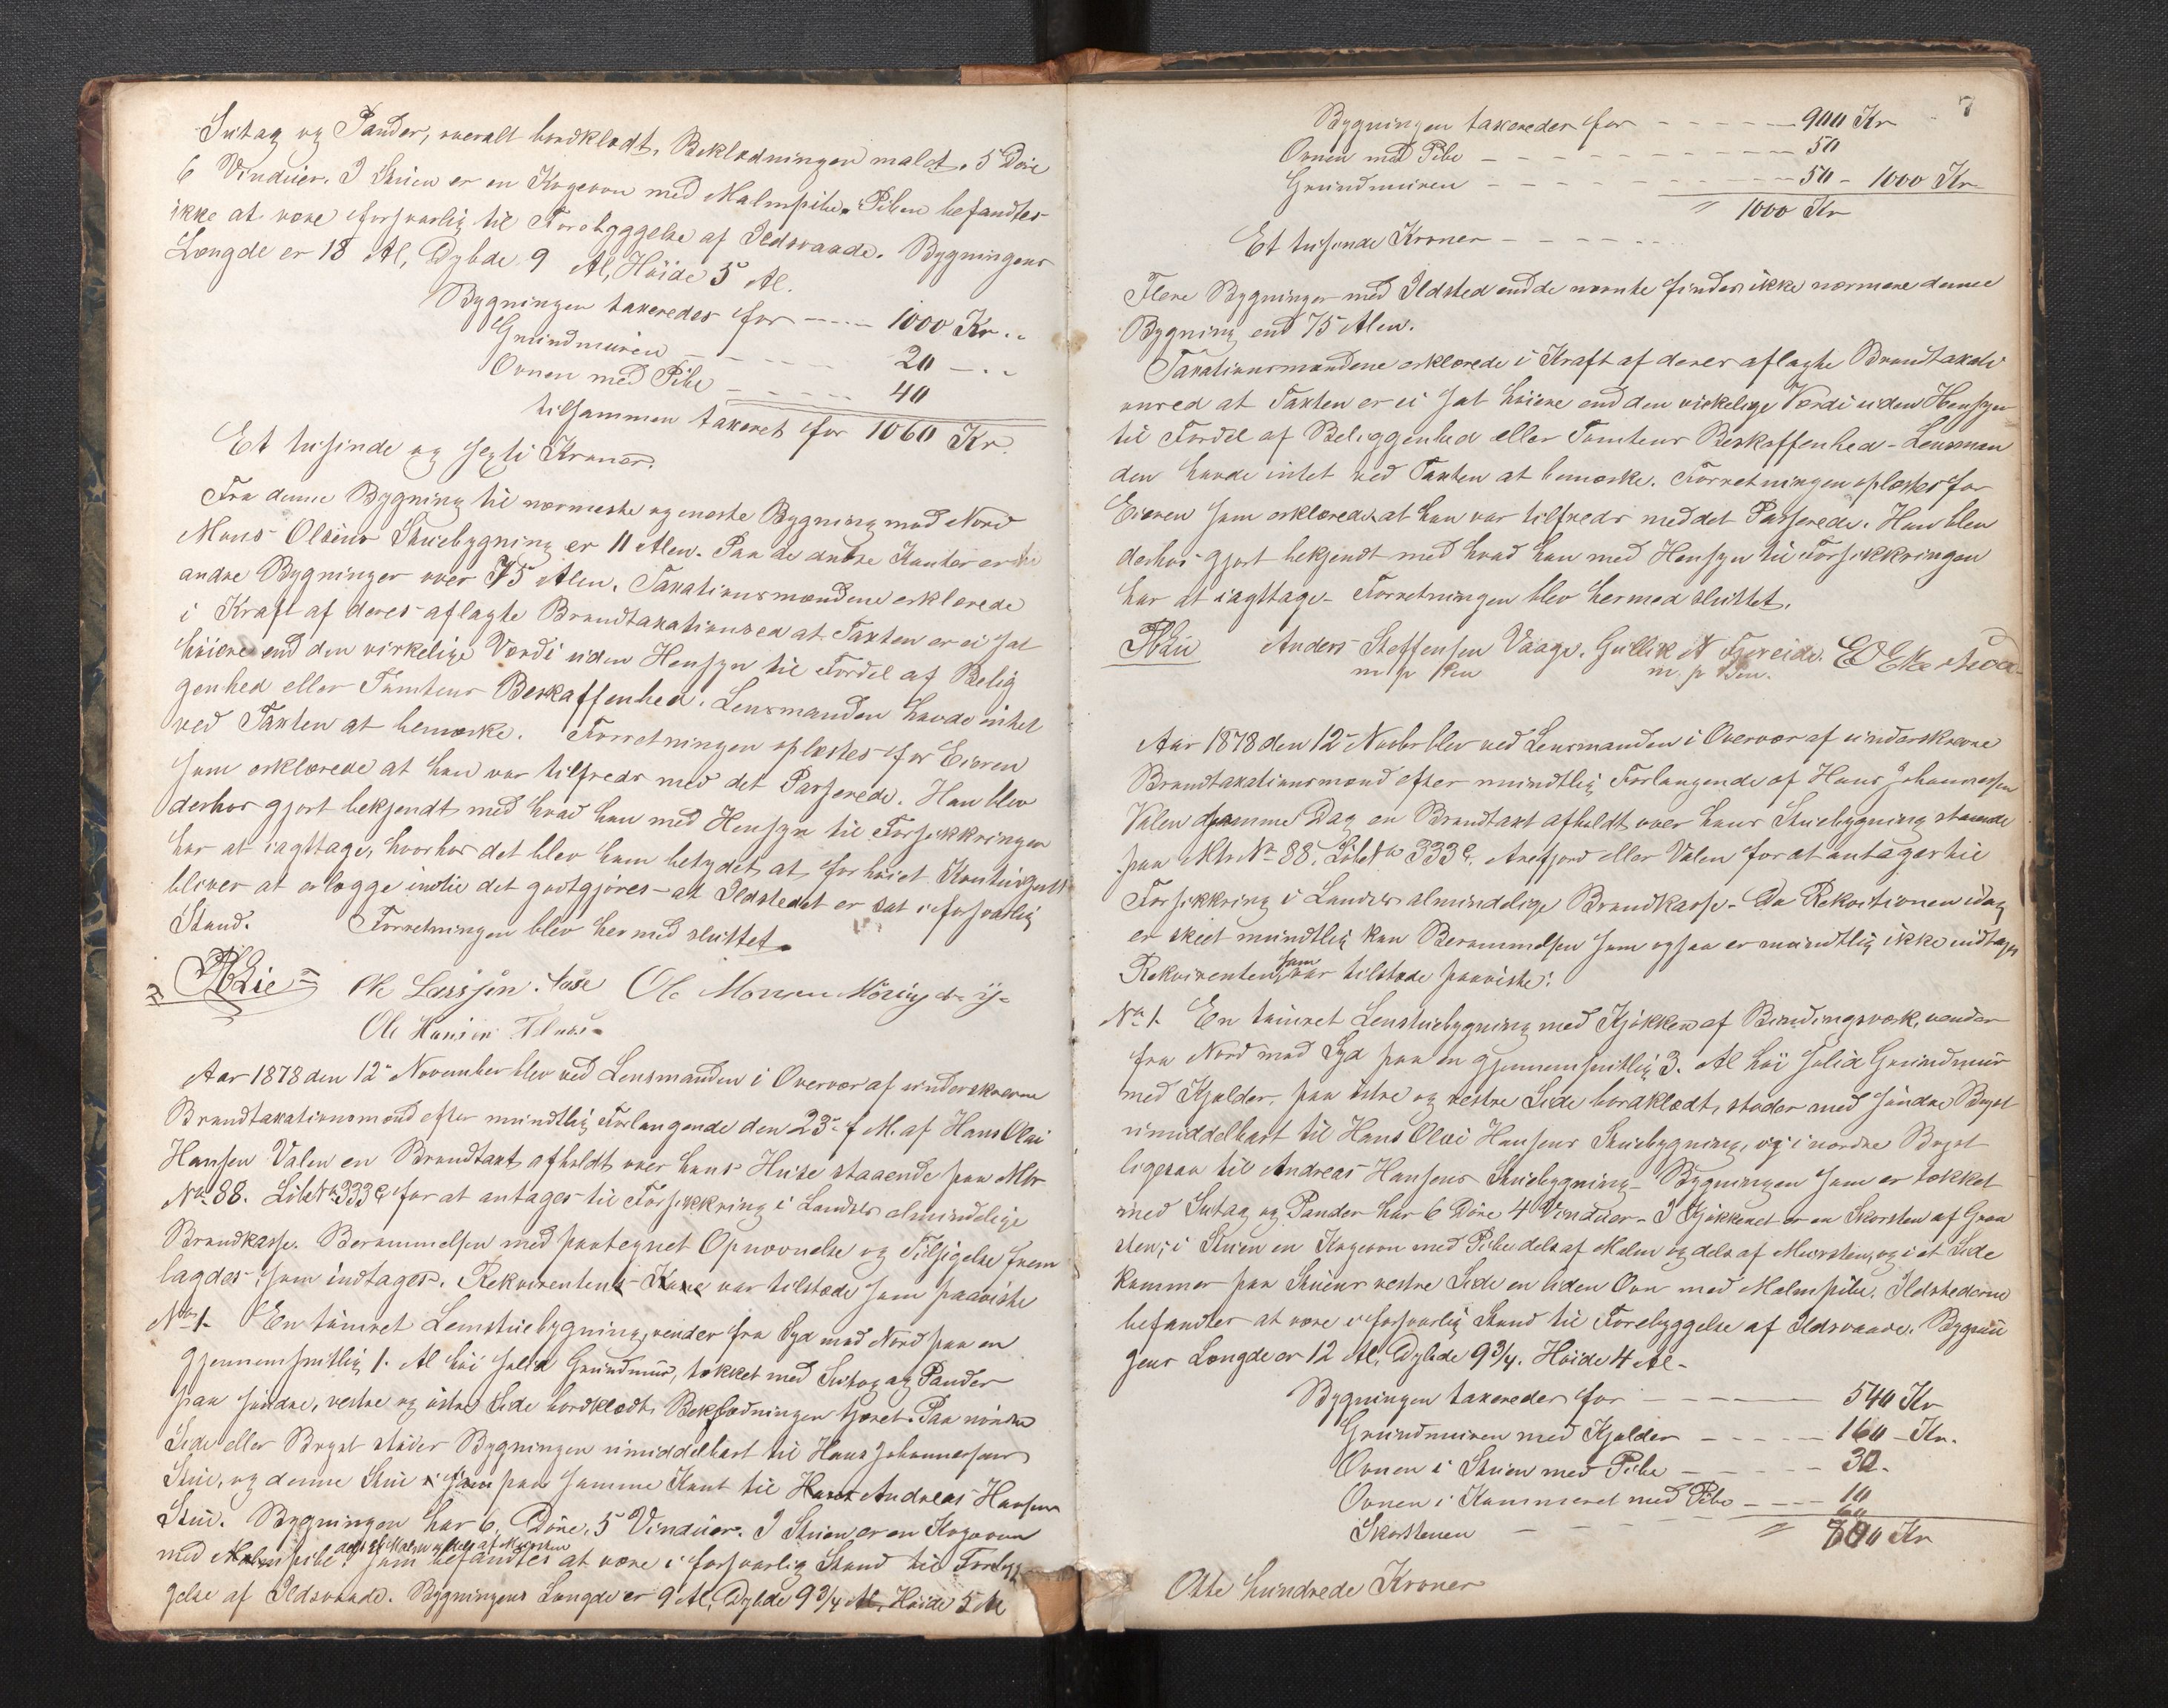 Sutag og Pander, overalt bordklædt, Beklædningen malet. 5 Döre
6 Vinduer. I Stuen er en Kogeovn med Malmpibe. Piben befandtes
ikke at være forsvarlig til Forebyggelse af Ildsvaade. Bygningens
Længde er 18 Al, Dybde 9 Al, Höide 5 Al.
Bygningen taxeredes for 1000 Kr.
Grundmuren 20
Ovnen med Pibe 40
tilsammen taxeret for 1060 Kr.
Et tusinde og sexti Kroner.
Fra denne Bygning til nærmeste og neste Bygning mod Nord
Mons Olsens Stuebygning er 11 Alen. Paa de andre Kanter er
andre Bygninger over 75 Alen. Taxationsmændene erklærede
i Kraft af deres aflagte Brandtaxationsed at Taxten er ei sat
höiere end den virkelige Værdi uden Hensyn til Fordel af Belig
genhed eller Tomtens Beskaffenhed. Lensmanden havde intet
ved Taxten at bemærke. Forretningen oplæstes for Eieren
som erklærede at han var tilfreds med det Passerede. Han blev
derhos gjort bekjendt med hvad han med Hensyn til Forsikkringen
har at iagttage, hvorhos det blev ham betydet at forhöiet Kontingent
bliver at erlægge indtil det godtgjøres at Ildstedet er sat i forsvarlig
Stand. Forretningen blev hermed sluttet.
Ole Larssen Ole Monsen
Ole Hansen
Aar 1878 den 12 November blev ved Lensmanden i Overvær af underskrevne
Brandtaxationsmænd efter mundtlig Forlangende den 23 f. M. af Hans Olai
Hansen Valen en Brandtaxt afholdt over hans Huse staaende paa Mtr
No 88. Löbe No 333 e for at antages til Forsikkring i Landets almindelige
Brandkasse. Berammelsen med paategnet Opnævnelse og Tilsigelse frem
lagdes som indtages. Rekvirentens Kone var tilstede som paaviste
No 1. En tömret Lemstuebygning, vender fra Syd mod Nord paa en
gjennemsnitlig 1. Al höi solid Grundmur, tækket med Sutag og Pander
paa söndre, vestre og östre Side bordklædt, Beklædningen tjæret. Paa nordre
Side eller Bryst støder Bygningen umiddelbart til Hans Johannessens
Stue, og denne Stue paa samme Kant til Andreas Hansens
Stue. Bygningen har 6 Döre, 5 Vinduer. I Stuen er en Kogeovn
dels af Malm og dels af Mursten
med Pibe som befandtes at være i forsvarlig Stand til Forbyg
gelse af Ildsvaade. Bygningens Længde er 9 Al, Dybde 9 3/4 Al, Höide 5 Al
7
Bygningen taxeredes for 900 Kr
Ovnen med Pibe 50
Grundmuren 50 - 1000 Kr
1000 Kr
Et tusende Kroner
Flere Bygninger med Ildsted end de nævnte findes ikke nærmere denne
Bygning end 75 Alen.
Taxationsmændene erklærede i Kraft af deres aflagte Brandtaxati
onsed at Taxten er ei sat höiere end den virkelige Værdi uden Hensyn
til Fordel af Beliggenhed eller Tomtens Beskaffenhed - Lensman
den havde intet ved Taxten at bemærke. Forretningen oplæstes for
Eieren som erklærede at han var tilfreds med det Passerede. Han blev
derhos gjort bekjendt med hvad han med Hensyn til Forsikkringen
har at iagttage - Forretningen blev hermed sluttet.
Anders Steffensen Vaage. Gullik N Fjereide.
m p Pen m. p Pen.
Aar 1878 den 12 Novbr blev ved Lensmanden i Overvær af underskrevne
Brandtaxationsmænd efter mundtlig Forlangende af Hans Johannessen
Valen samme Dag en Brandtaxt afholdt over hans Stuebygning staaende
paa Mtr No 88. Löbe No 333 e. Arefjord eller Valen for at antages til
Forsikkring i Landets almindelige Brandkasse - Da Rekvisitionen idag
er skeet mundtlig kan Berammelsen som ogsaa er mundtlig ikke indtages
Rekvirenten som var tilstede paaviste:
No 1. En tömret Lemstuebygning med Kjøkken af Bindingsværk, vender
fra Nord mod Syd paa en gjennemsnitlig 3. Al höi solid Grundmur
med Kjelder, paa östre og vestre Side bordklædt, støder med søndre Bryst
umiddelbart til Hans Olai Hansens Stuebygning, og i nordre Bryst
ligesaa til Andreas Hansens Stuebygning - Bygningen som er tækket
med Sutag og Pander har 6 Döre 4 Vinduer - I Kjøkkenet er en Skorsten af Graa
sten; i Stuen en Kogeovn med Pibe dels af Malm og dels af Mursten, og i et Side
kammer paa Stuens vestre Side en liden Ovn med Malmpibe. Ildstederne
befandtes at være i forsvarlig Stand til Forebyggelse af Ildsvaade. Bygnin
gens Længde er 12 Al, Dybde 9 3/4. Höide 4 Al -
Bygningen taxeredes for 540 Kr
Grundmuren med Kjelder 160 Kr.
Ovnen i Stuen med Pibe 30.
Ovnen i Kammeret med Pibe 10
Skorstenen 60
800 Kr
Otte hundrede Kroner